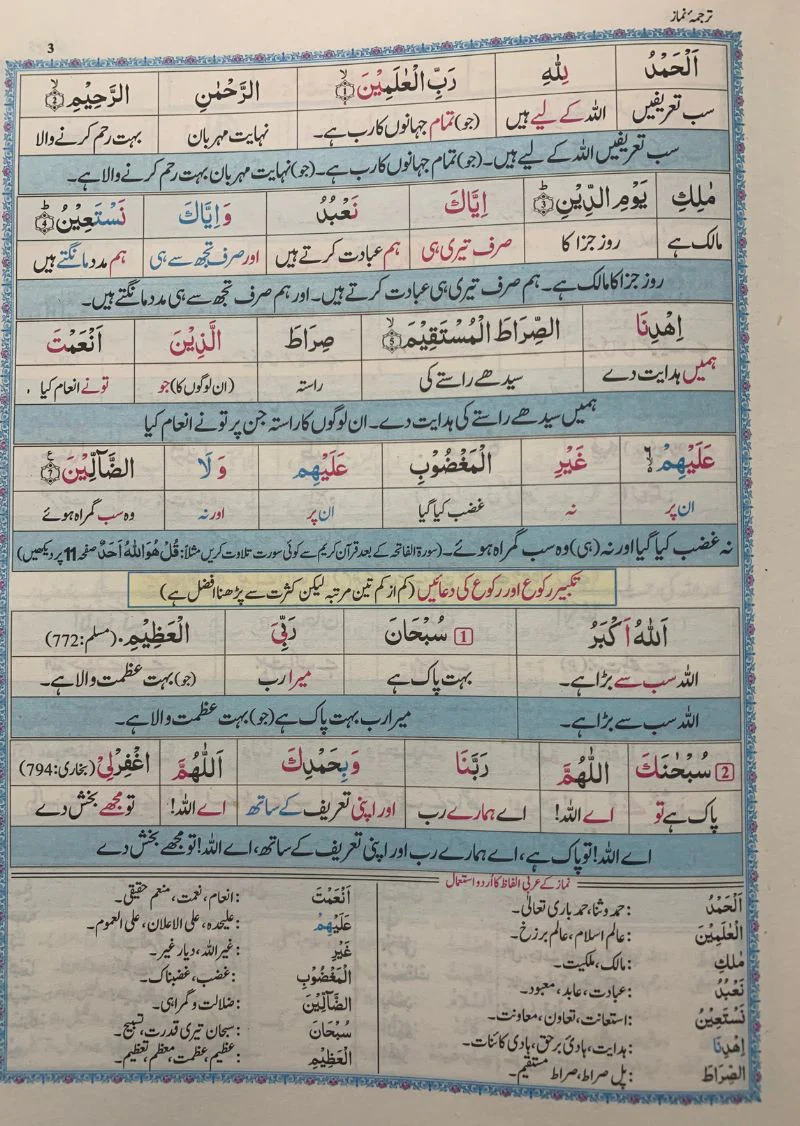 ترجمۂ نماز
3
اَلْحَمْدُ لِلّٰهِ رَبِّ الْعٰلَمِيْنَ ۙ﴿1﴾ الرَّحْمٰنِ الرَّحِيْمِ ۙ﴿2﴾
سب تعریفیں اللہ کے لیے ہیں (جو) تمام جہانوں کا رب ہے۔ نہایت مہربان بہت رحم کرنے والا
سب تعریفیں اللہ کے لیے ہیں۔ (جو) تمام جہانوں کا رب ہے۔ (جو) نہایت مہربان بہت رحم کرنے والا ہے۔
مٰلِكِ يَوْمِ الدِّيْنِ ؕ﴿3﴾ اِيَّاكَ نَعْبُدُ وَاِيَّاكَ نَسْتَعِيْنُ ؕ﴿4﴾
مالک ہے روز جزا کا صرف تیری ہی ہم عبادت کرتے ہیں اور صرف تجھ سے ہی ہم مدد مانگتے ہیں
روز جزا کا مالک ہے۔ ہم صرف تیری ہی عبادت کرتے ہیں۔ اور ہم صرف تجھ سے ہی مدد مانگتے ہیں۔
اِهْدِنَا الصِّرَاطَ الْمُسْتَقِيْمَ ۙ﴿5﴾ صِرَاطَ الَّذِيْنَ اَنْعَمْتَ
ہمیں ہدایت دے سیدھے راستے کی راستہ (ان لوگوں کا) جو تونے انعام کیا
ہمیں سیدھے راستے کی ہدایت دے۔ ان لوگوں کا راستہ جن پر تو نے انعام کیا
عَلَيْهِمْ ۙ۬6 غَيْرِ الْمَغْضُوْبِ عَلَيْهِم وَلَا الضَّآلِّيْنَ ۧ﴿7﴾
ان پر نہ غضب کیا گیا ان پر اور نہ وہ سب گمراہ ہوئے
نہ غضب کیا گیا اور نہ (ہی) وہ سب گمراہ ہوئے۔ (سورۃ الفاتحہ کے بعد قرآن کریم سے کوئی سورت تلاوت کریں مثلاً: قُلْ هُوَ اللهُ اَحَدٌ صفحہ 11 پر دیکھیں)
تکبیر رکوع اور رکوع کی دعائیں (کم از کم تین مرتبہ لیکن کثرت سے پڑھنا افضل ہے)
اَللهُ اَكْبَرُ 1 سُبْحَانَ رَبِّيَ الْعَظِيْمِ. (مسلم:772)
اللہ سب سے بڑا ہے۔ بہت پاک ہے میرا رب (جو) بہت عظمت والا ہے۔
اللہ سب سے بڑا ہے۔ میرا رب بہت پاک ہے (جو) بہت عظمت والا ہے۔
2 سُبْحٰنَكَ اللّٰهُمَّ رَبَّنَا وَبِحَمْدِكَ اَللّٰهُمَّ اغْفِرْلِيْ (بخاری:794)
پاک ہے تو اے اللہ! اے ہمارے رب اور اپنی تعریف کے ساتھ اے اللہ! تو مجھے بخش دے
اے اللہ! تو پاک ہے، اے ہمارے رب اور اپنی تعریف کے ساتھ، اے اللہ! تو مجھے بخش دے
نماز کے عربی الفاظ کا اُردو استعمال
اَلْحَمْدُ : حمد و ثنا، حمد باری تعالیٰ۔
الْعٰلَمِيْنَ : عالم اسلام، عالم برزخ۔
مٰلِكِ : مالک، ملکیت۔
نَعْبُدُ : عبادت، عابد، معبود۔
نَسْتَعِيْنُ : استعانت، تعاون، معاونت۔
اِهْدِنَا : ہدایت، ہادیٔ برحق، ہادی کائنات۔
الصِّرَاطَ : پل صراط، صراط مستقیم۔
اَنْعَمْتَ : انعام، نعمت، منعم حقیقی۔
عَلَيْهِمْ : علیحدہ، علی الاعلان، علی العموم۔
غَيْرِ : غیر اللہ، دیار غیر۔
الْمَغْضُوْبِ : غضب، غضبناک۔
الضَّآلِّيْنَ : ضلالت و گمراہی۔
سُبْحَانَ : سبحان تیری قدرت، تسبیح۔
الْعَظِيْمِ : عظیم، عظمت، معظم، تعظیم۔